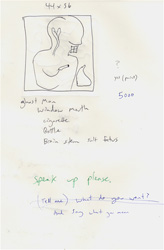 44 x 36
?
5000
ghost man
window mouth
cigarette
Bottle
Brain stem cut fetus
Speak up please.
(Tell me) what do you want?
And say what you mean